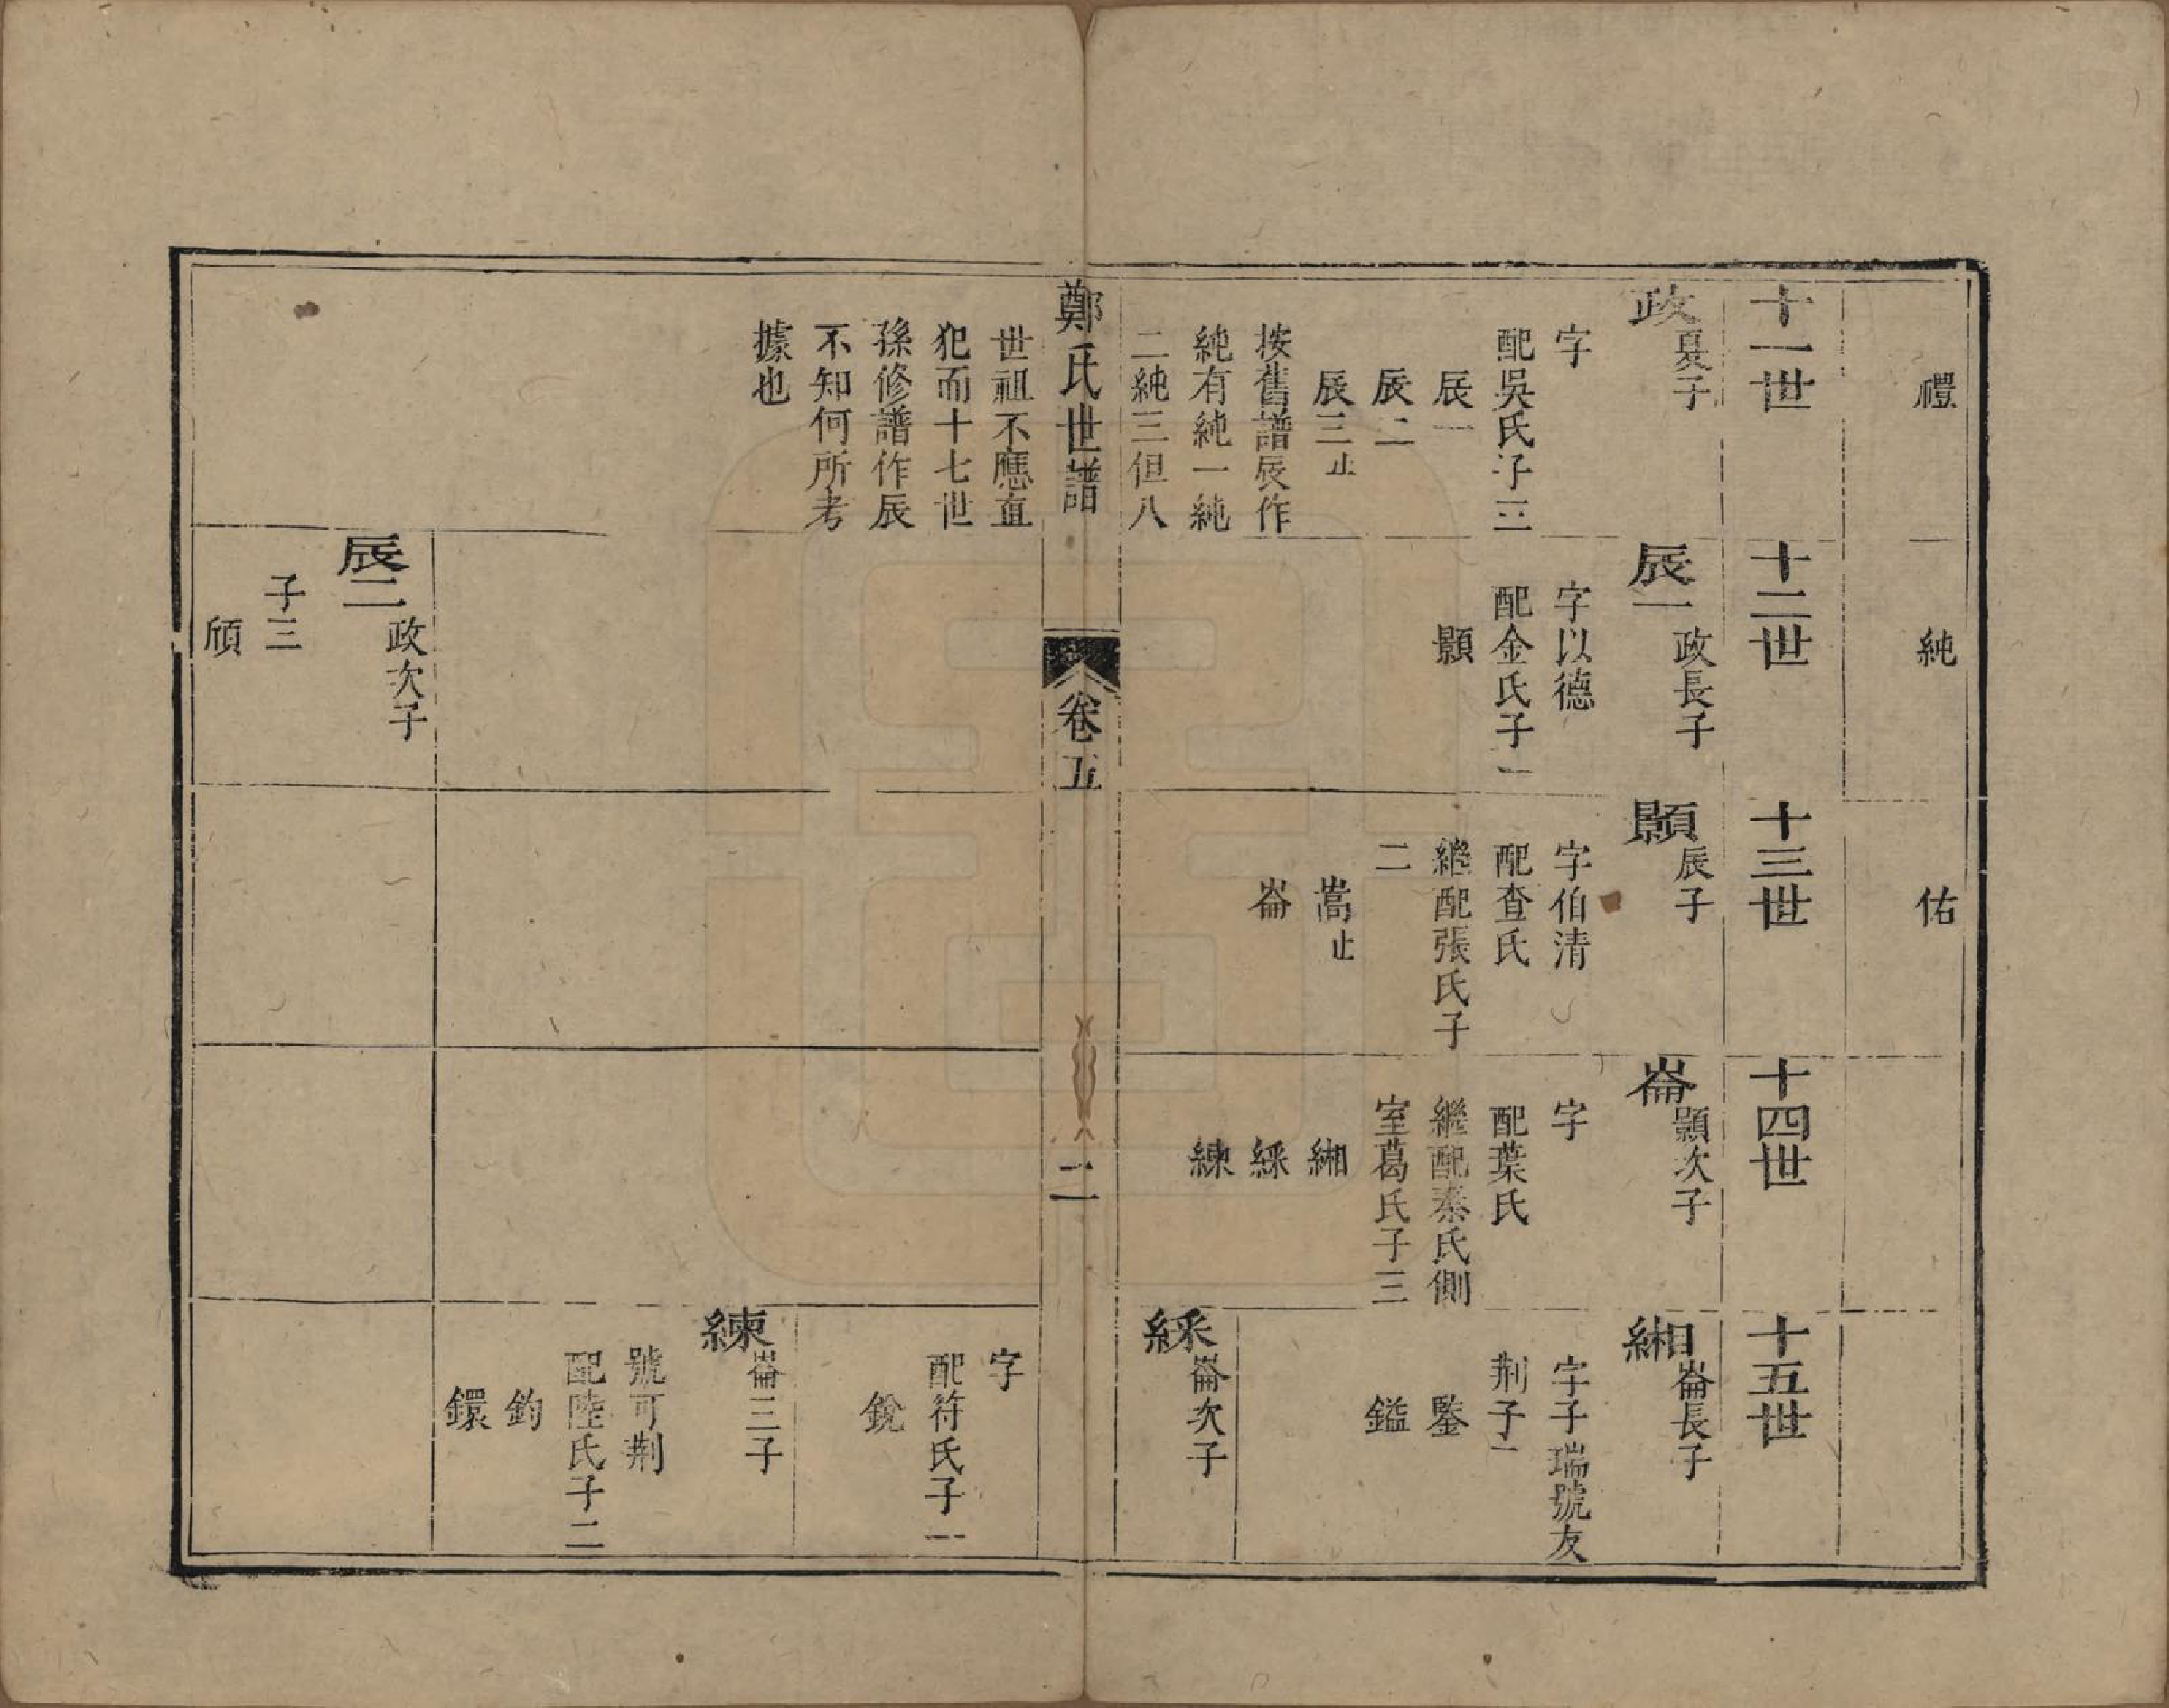 禮
純
佑
十一世
十二世
十三世
十四世
十五世
政
夏子
字
配吳氏子三
辰一
辰二
辰三止
按舊譜辰作
純有純一純
二純三但八
世祖不應直
犯而十七世
孫修譜作辰
不知何所考
據也
辰一
政長子
字以德
配金氏子一
顥
顥
辰子
字伯清
配查氏
繼配張氏子
二
嵩止
崙
崙
顥次子
字
配葉氏
繼配秦氏側
室葛氏子三
緗
綵
練
緗
崙長子
字子瑞號友
荆子
鍳
鎰
綵
崙次子
字
配符氏子一
銳
練
崙三子
號可荆
配陸氏子二
鈞
鐶
辰二
政次子
子三
頎
鄭氏世譜
卷五
二